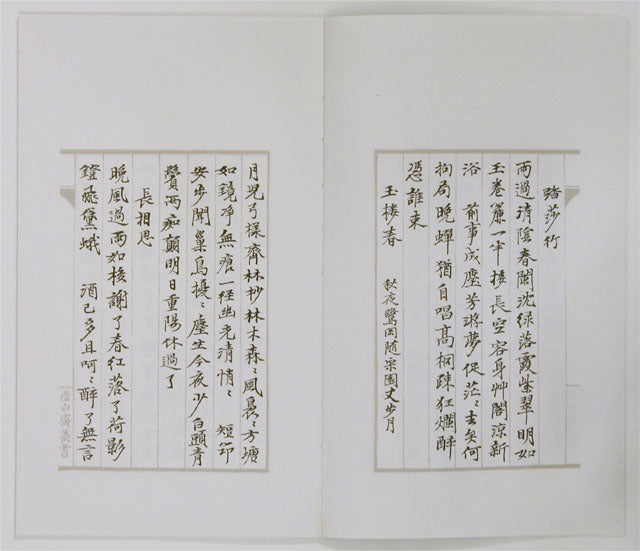 踏莎行
雨過清陰春闌沈綠落霞紫翠明如
玉卷簾一半接長空容身艸閣涼新
浴　前事成塵芳游夢促茫〻去矣何
拘局晚蟬猶自唱高桐疎狂爛醉
憑誰束
玉樓春　秋夜鷺隨宗丈步月
月兒弓樣齊林杪林木森〻風裊〻方塘
如鏡淨無痕一徑幽光清悄〻　短笻
安步閒巢烏擾〻塵生今夜少白頭青
鬢兩痴顛明日重陽休過了
長相思
晚風過雨如梭謝了春紅落了荷影
鐙飛黛蛾　酒已多且呵〻醉了無言
虛白齋叢書